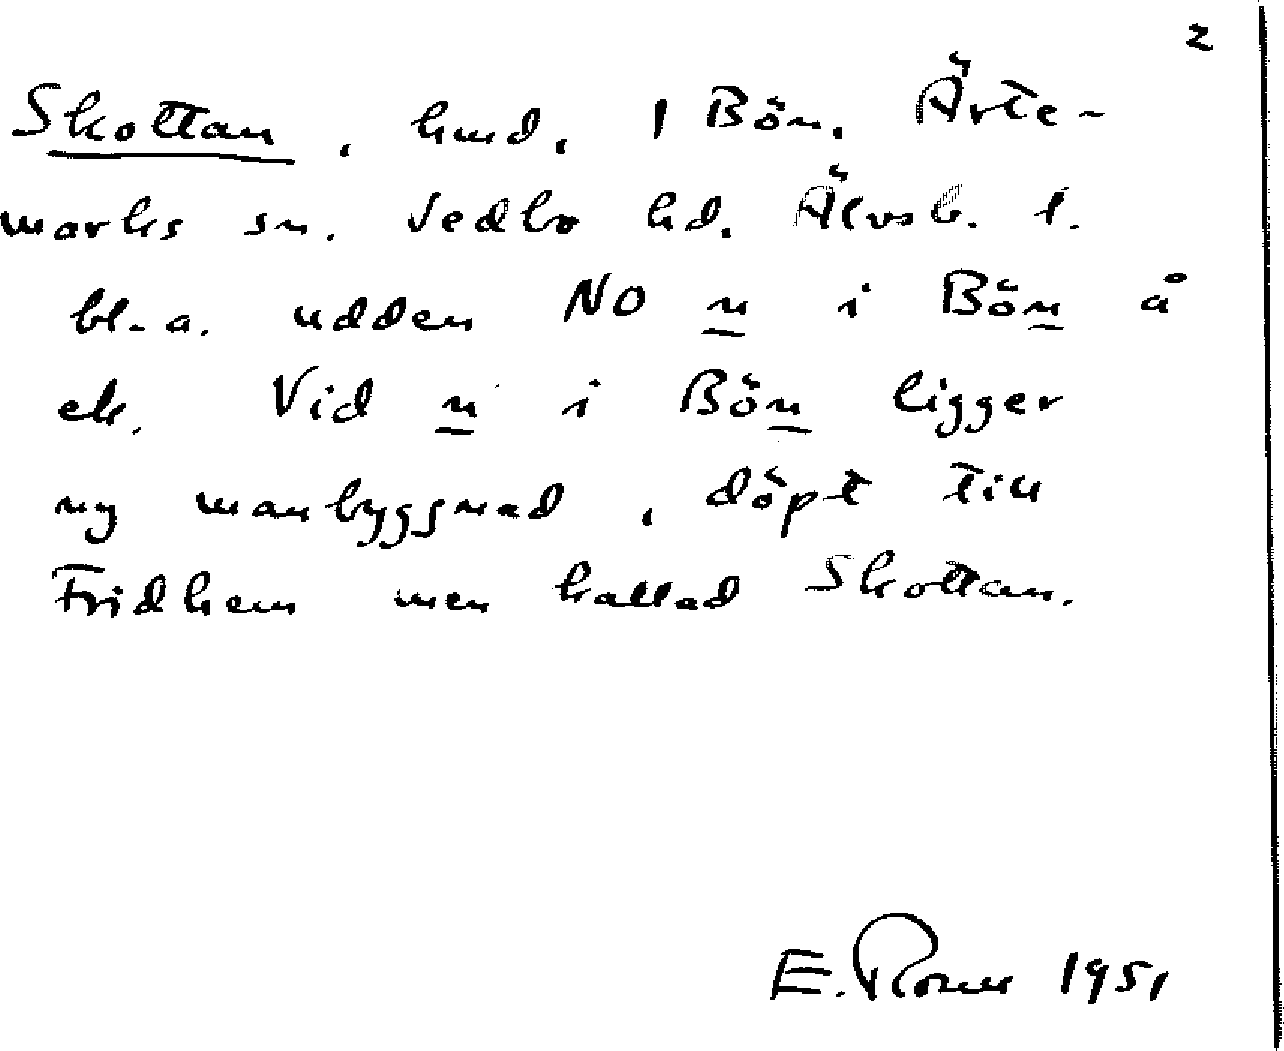 2
Skottan, hmd, 1 Bön, Ärte-
marks sn. Vedbo hd. Älvsb. l.
bl. a. udden NO n i Bön å
ek. Vid n i Bön ligger
ny manbyggnad, döpt till
Fridhem men kallad Skottan.
E. 1951